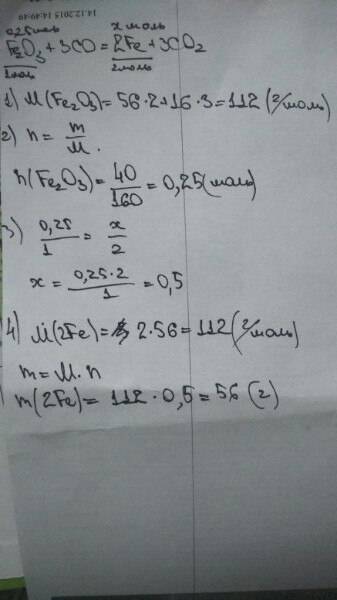 14.12.2015 14:49:49
0,25моль х моль
Fe₂O₃ + 3CO = 2Fe + 3CO₂
1моль 2моль
1) M(Fe₂O₃) = 56·2+16·3 = 112 (г/моль)
2) n = m/M.
n(Fe₂O₃) = 40/160 = 0,25 (моль)
3) 0,25/1 = x/2
x = 0,25·2/1 = 0,5
4) M(2Fe) = 2·56 = 112 (г/моль)
m = M·n
m(2Fe) = 112 · 0,5 = 56 (г)